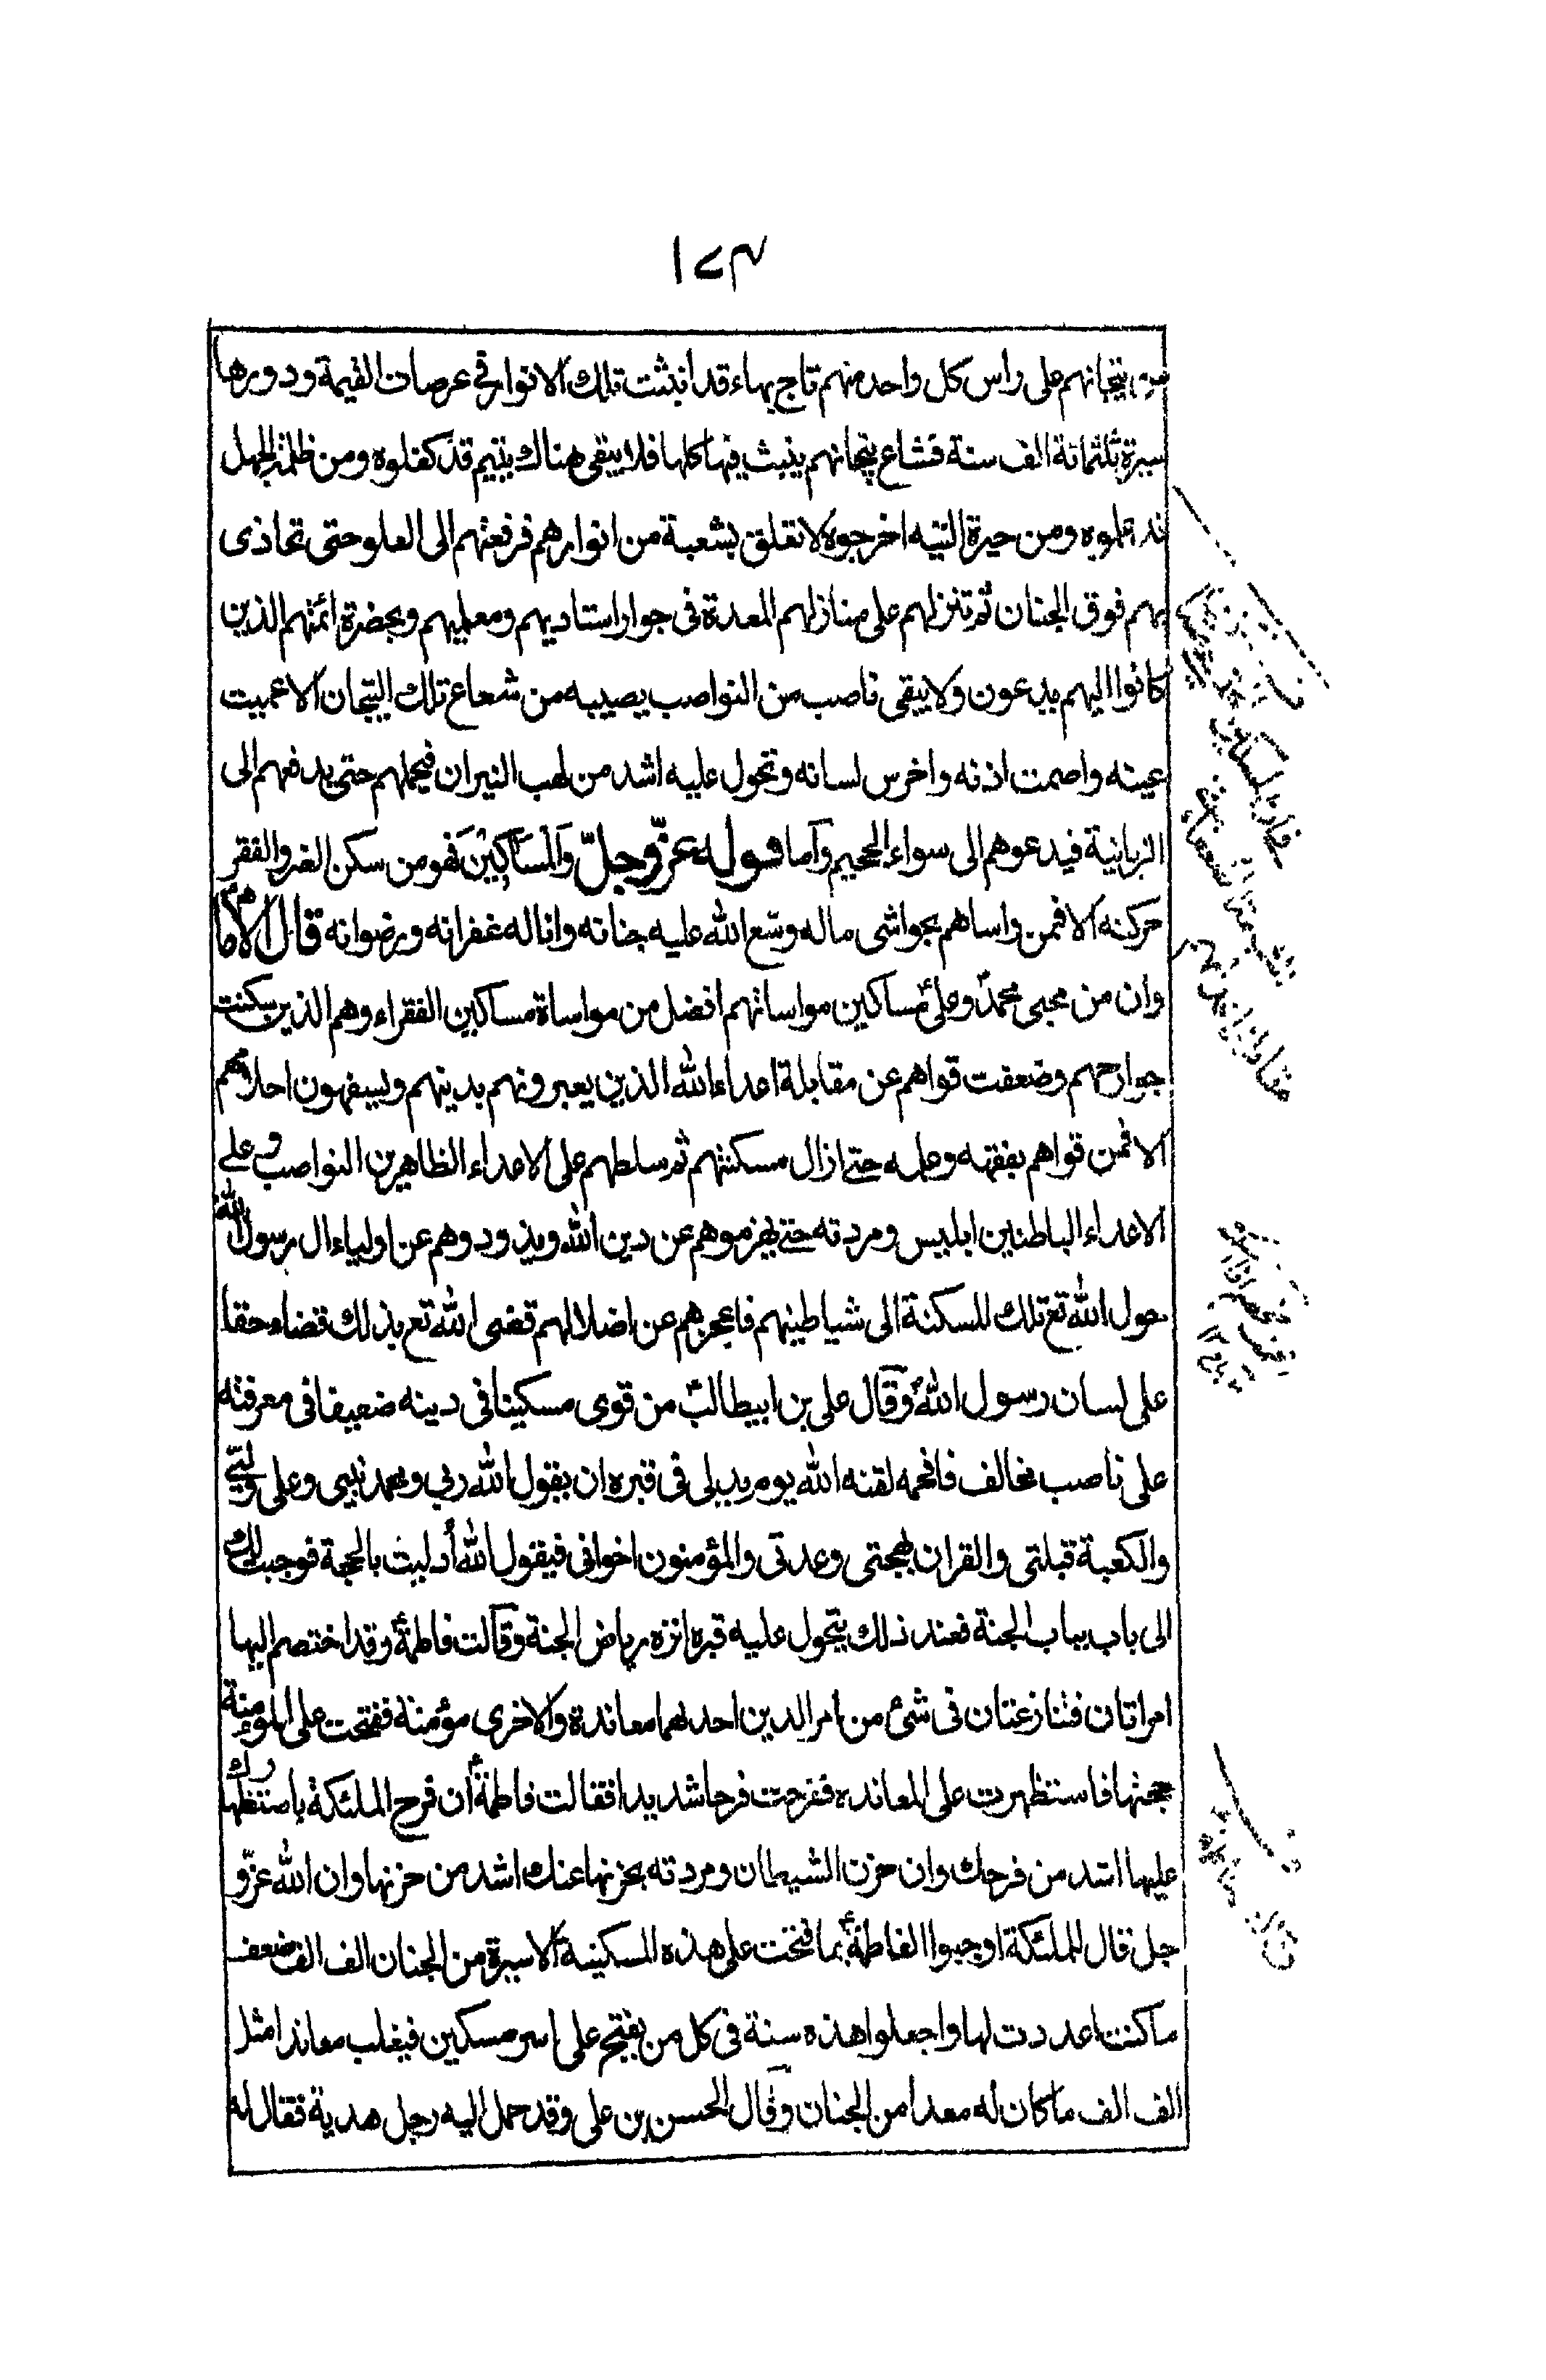 ١٧٣
من تيجانهم على رأس كل واحد منهم تاج بهاء قد انبثت تلك الانوار في عرصات القيمة ودورها
مسيرة ثلثمائة الف سنة فشعاع تيجانهم ينبث فيها كلها فلا يبقى هناك يتيم قد كفلوه ومن ظلمة الجهل
قد علموه ومن حيرة التيه اخرجوه الا تعلق بشعبة من انوارهم فرفعتهم الى العلو حتى تحاذى
بهم فوق الجنان ثم تنزلهم على منازلهم المعدة في جوار استاديهم ومعلميهم وبحضرة ائمتهم الذين
كانوا اليهم يدعون ولا يبقى ناصب من النواصب يصيبه من شعاع تلك التيجان الا عميت
عينه واصمت اذنه واخرس لسانه وتحول عليه اشد من لهب النيران فيحملهم حتى يدفعهم الى
الزبانية فيدعوهم الى سواء الجحيم وأما قوله عزّ وجلّ وَالْمَسَاكِيْن فهو من سكن الضر والفقر
حركته الا فمن واساهم بحواشى ماله وسّع الله عليه جنانه واناله غفرانه ورضوانه قال الامام
وان من محبى محمد وعلى مساكين مواساتهم افضل من مواساة مساكين الفقراء وهم الذين سكنت
جوارحهم وضعفت قواهم عن مقابلة اعداء الله الذين يعيرونهم بدينهم ويسفهون احلامهم
الا فمن قواهم بفقهه وعلمه حتى ازال مسكنتهم ثم سلطهم على الاعداء الظاهرين النواصب وعلى
الاعداء الباطنين ابليس ومردته حتى يهزموهم عن دين الله ويذودوهم عن اولياء ال رسول الله
حول الله تع تلك المسكنة الى شياطينهم فاعجزهم عن اضلالهم قضى الله تع بذلك قضاء حقا
على لسان رسول الله وقال على بن ابيطالب من قوى مسكينا في دينه ضعيفا في معرفته
على ناصب مخالف فافحمه لقنه الله يوم يدلى في قبره ان يقول الله ربي ومحمد نبيى وعلى وليّي
والكعبة قبلتى والقران بهجتى وعدتى والمؤمنون اخوانى فيقول الله أدليت بالحجة فوجبت لك
الى باب بباب الجنة فعند ذلك يتحول عليه قبره انزه رياض الجنة وقالت فاطمة وقد اختصم اليها
امراتان فتنازعتان في شئ من امر الدين احدىهما معاندة والاخرى مؤمنة ففتحت على المؤمنة
حجتها فاستظهرت على المعانده ففرحت فرحا شديدا فقالت فاطمة أن فرح الملئكة باستظهارك
عليها اشد من فرحك وان حزن الشيطان ومردته بحزنها عنك اشد من حزنها وان الله عزّ و
جل قال للملئكة اوجبوا لفاطمة بما فتحت على هذه المسكينة الاسيرة من الجنان الف الف ضعف
ما كنت اعددت لها واجعلوا هذه سنة فى كل من يفتح على اسر مسكين فيغلب معاندا مثل
الف الف ما كان له معدا من الجنان وقال الحسن بن على وقد حمل اليه رجل هدية فقال له